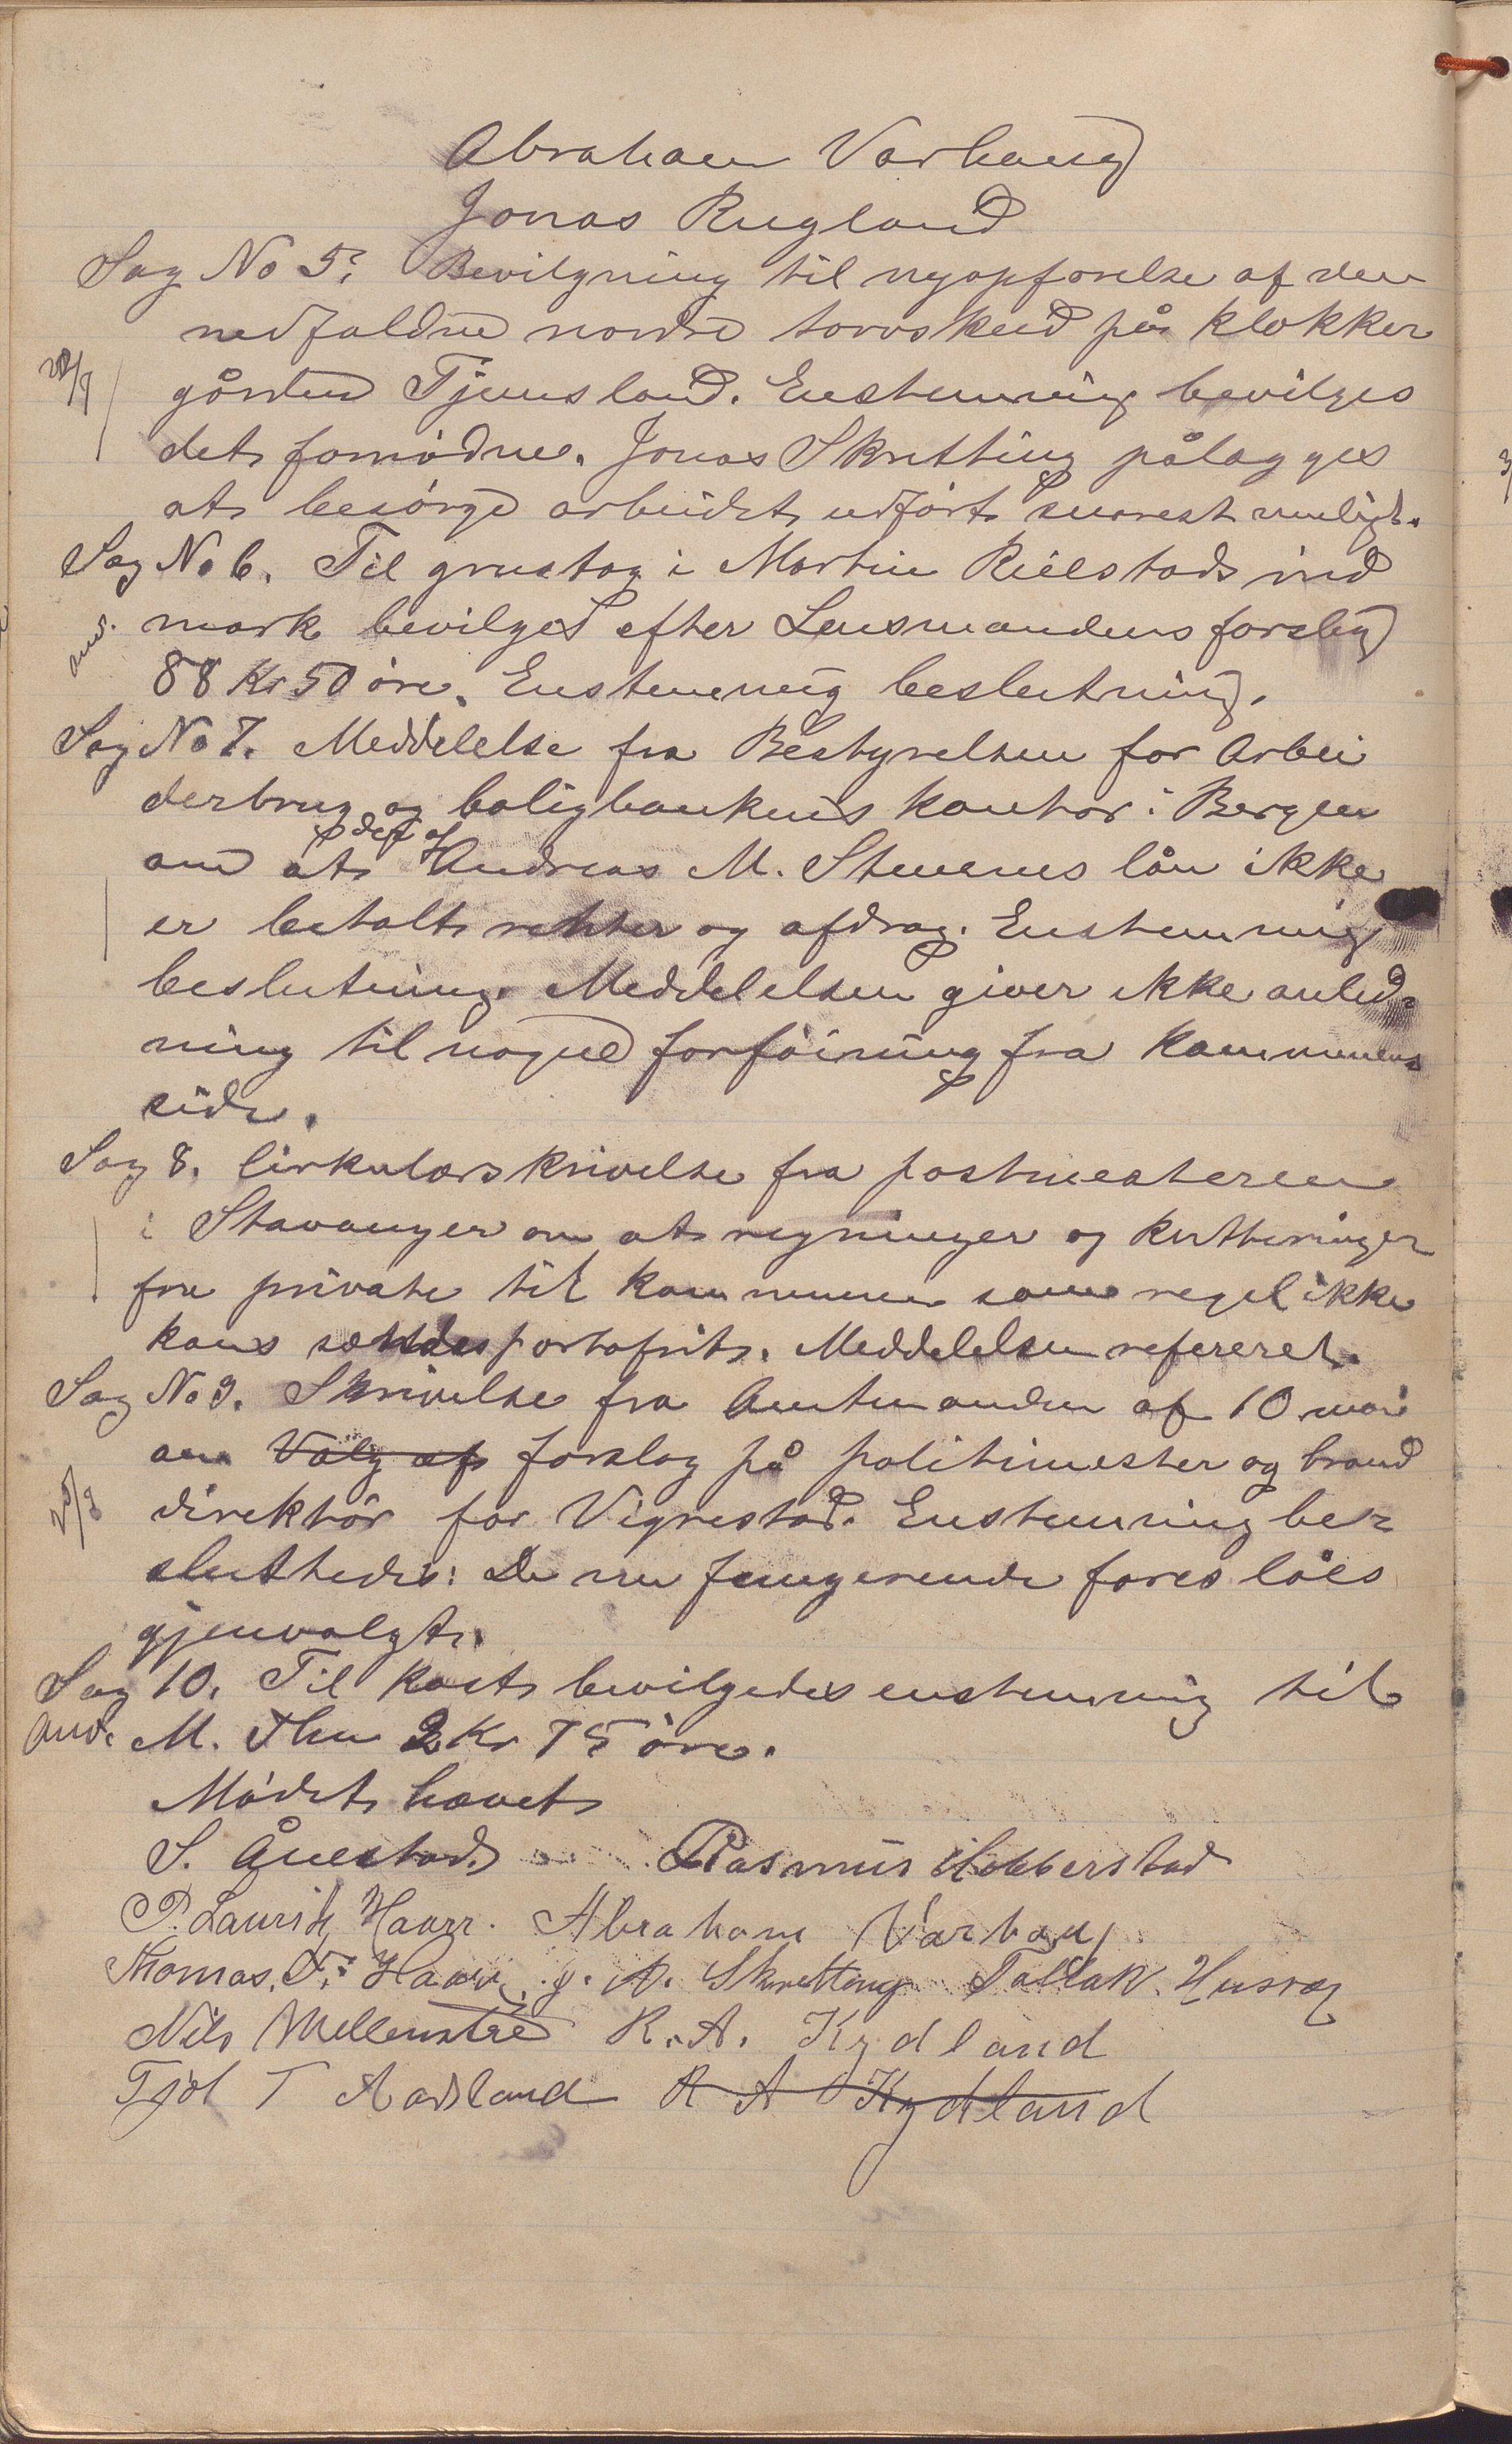 Abraham Varhaug
Jonas Rugland
Sag No 5. Bevilgning til nyopførelse af den
nedfaldne nordre torvskeid på klokker
28/8 gården Tjensland. Enstemmig bevilges
det fornødne. Jonas Skretting pålægges
at besørge arbeidet udført snarest muligt.
Sag No 6. Til grustag i Martin Rielstads ind
anv. mark bevilges efter Lensmandens forslag
88 Kr 50 øre. Enstemmig beslutning.
Sag No 7. Meddelelse fra Bestyrelsen for Arbei
derbrug og boligbankens kontor i Bergen
om at det af Andreas M. Stenenes lån ikke
er betalt renter og afdrag. Enstemmig
beslutning. Meddelelsen giver ikke anled-
ning til nogen forføining fra kommunens
side.
Sag 8. Cirkulærskrivelse fra postmesteren
i Stavanger om at regninger og kvitteringer
fra private til kommunen som regel ikke
kans sendes portofrit. Meddelelsen refereret.
Sag No 9. Skrivelse fra Amtmanden af 10 mai
om Valg af forslag på politimester og brand
25/8 direktør for Vigrestad. Enstemmig be-
sluttedes: De nu fungerende foreslåes
gjenvalgt.
Sag 10. Til kost bevilgedes enstemmig til
Anv. M. Them 2 Kr 75 øre.
Mødet hævet
S. Ånestad. Rasmus Hobberstad
P. Laurits Haarr. Abraham Varhaug
Thomas. T. Haarr. J. A. Skretting Tallak Husvæg
Nils Mellemstred R. A. Kydland
Tjøl T Aadland R A Kydland